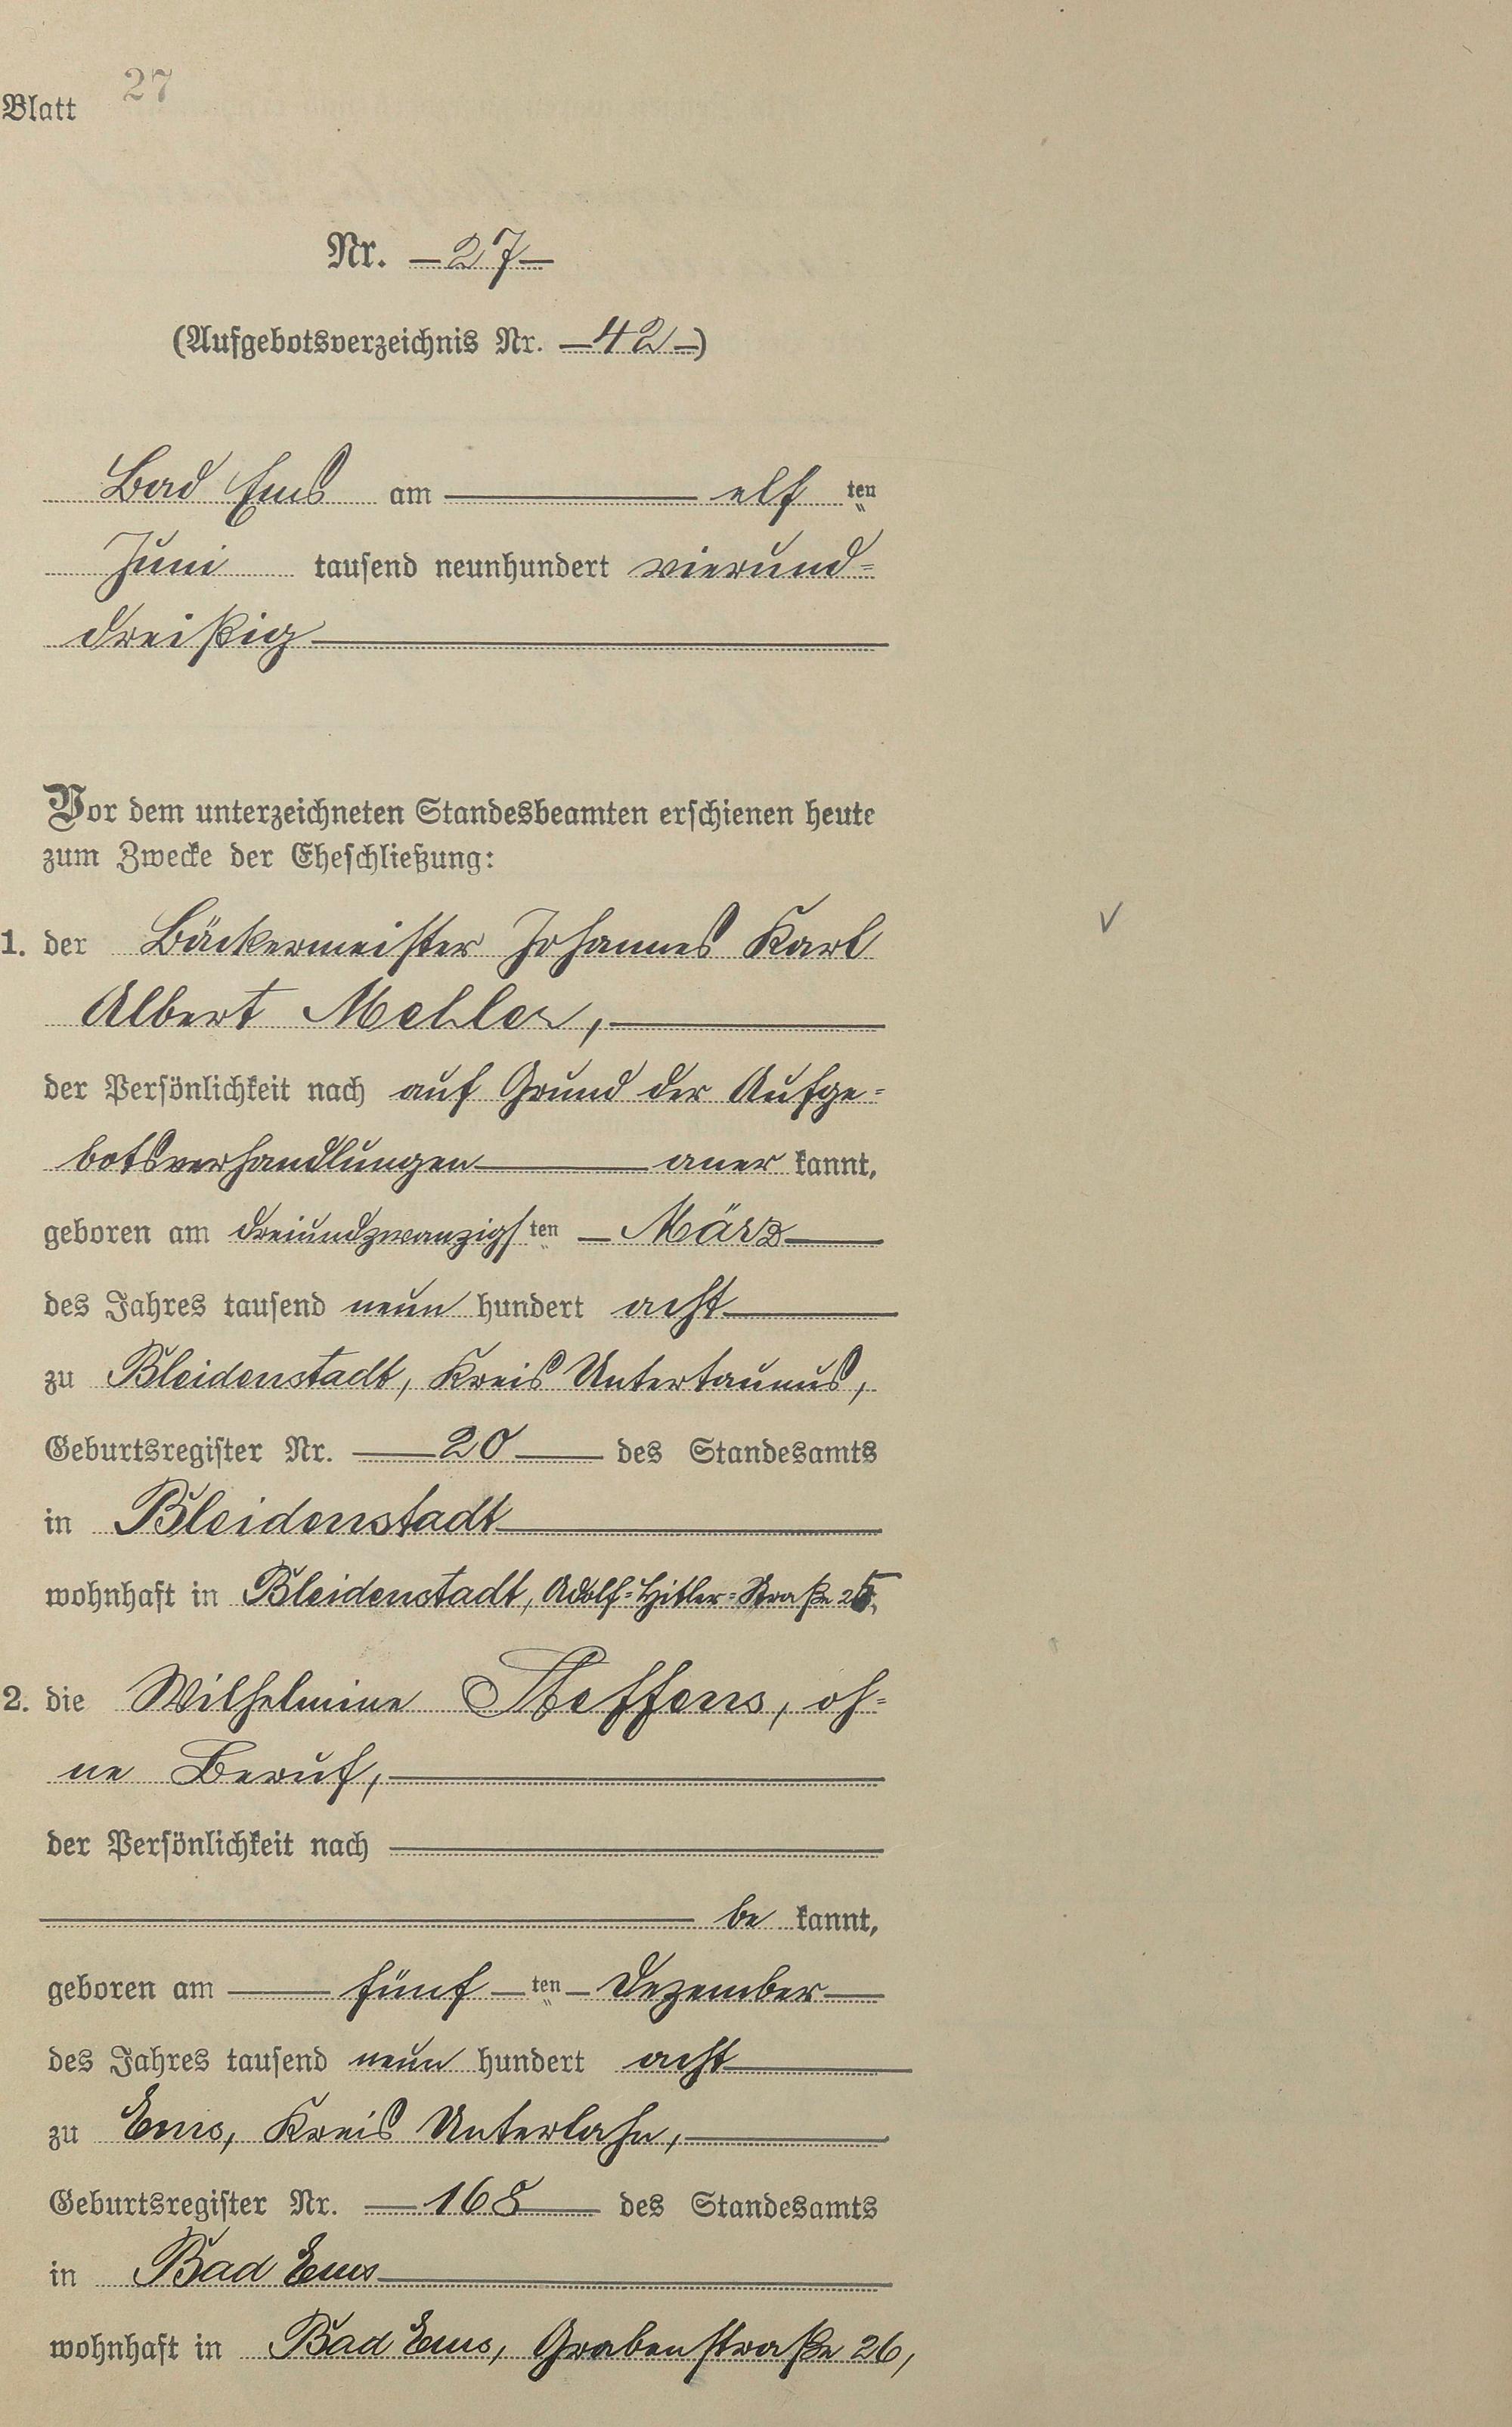 Blatt 27
Nr. 27
(Aufgebotsverzeichnis Nr. 42)
Bad Ems am elf ten
Juni tausend neunhundert vierund=
dreißig
Vor dem unterzeichneten Standesbeamten erschienen heute
zum Zwecke der Eheschließung:
1. der Bäckermeister Johannes Karl
Albert Mehler,
der Persönlichkeit nach auf Grund der Aufge=
botsverhandlungen aner kannt,
geboren am dreiundzwanzigs ten März
des Jahres tausend neun hundert acht
zu Bleidenstadt, Kreis Untertaunus,
Geburtsregister Nr. 20 des Standesamts
in Bleidenstadt
wohnhaft in Bleidenstadt, Adolf=Hitler=Straße 25,
2. die Wilhelmine Steffens, oh=
ne Beruf,
der Persönlichkeit nach
be kannt,
geboren am fünf ten Dezember
des Jahres tausend neun hundert acht
zu Ems, Kreis Unterlahn,
Geburtsregister Nr. 168 des Standesamts
in Bad Ems
wohnhaft in Bad Ems, Grabenstraße 26,